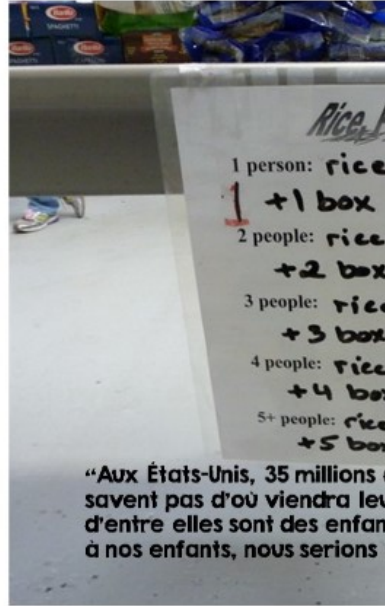 Barilla
Barilla
SPAGHETTI
Rice,
1 person: rice
1 +1 box
2 people: rice
+2 box
3 people: rice
+3 box
4 people: rice
+4 box
5+ people: rice
+5 box
“Aux États-Unis, 35 millions
savent pas d'où viendra
d'entre elles sont des
à nos enfants, nous serions